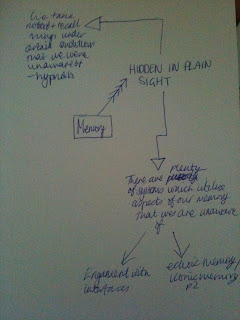 We take
things under
certain conditions
that we were
unaware of
- hypnosis
HIDDEN IN PLAIN
SIGHT
Memory
plenty
There are
of systems which utilise
aspects of our memory
that we are unaware
of
Engagement with
interfaces
echoic memory/
iconic memory
P2